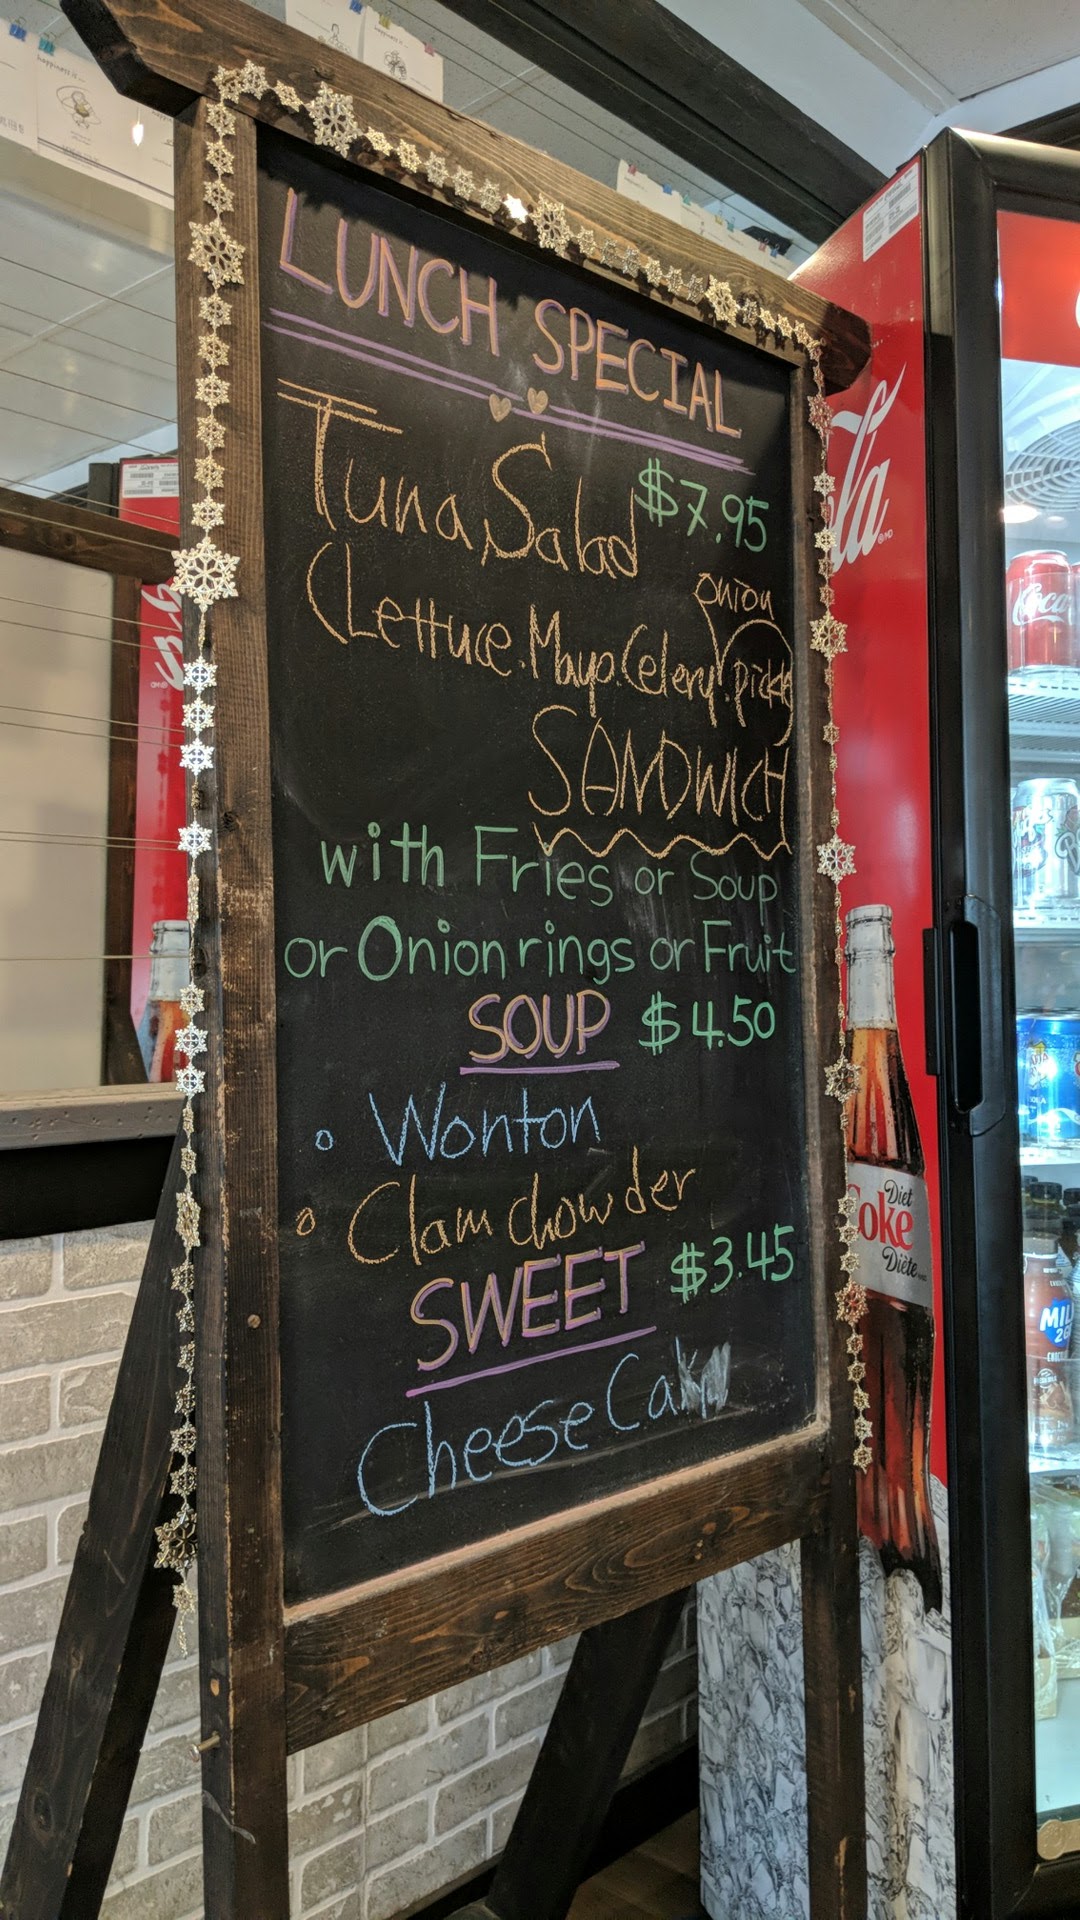 LUNCH SPECIAL
Tuna, Salad $7.95
onion
(Lettuce. Mayo. Celery. pickle)
SANDWICH
with Fries or Soup
or Onion rings or Fruit
SOUP $4.50
Wonton
Clam chowder
SWEET $3.45
Cheese Cake
Diet
Coke
Diète